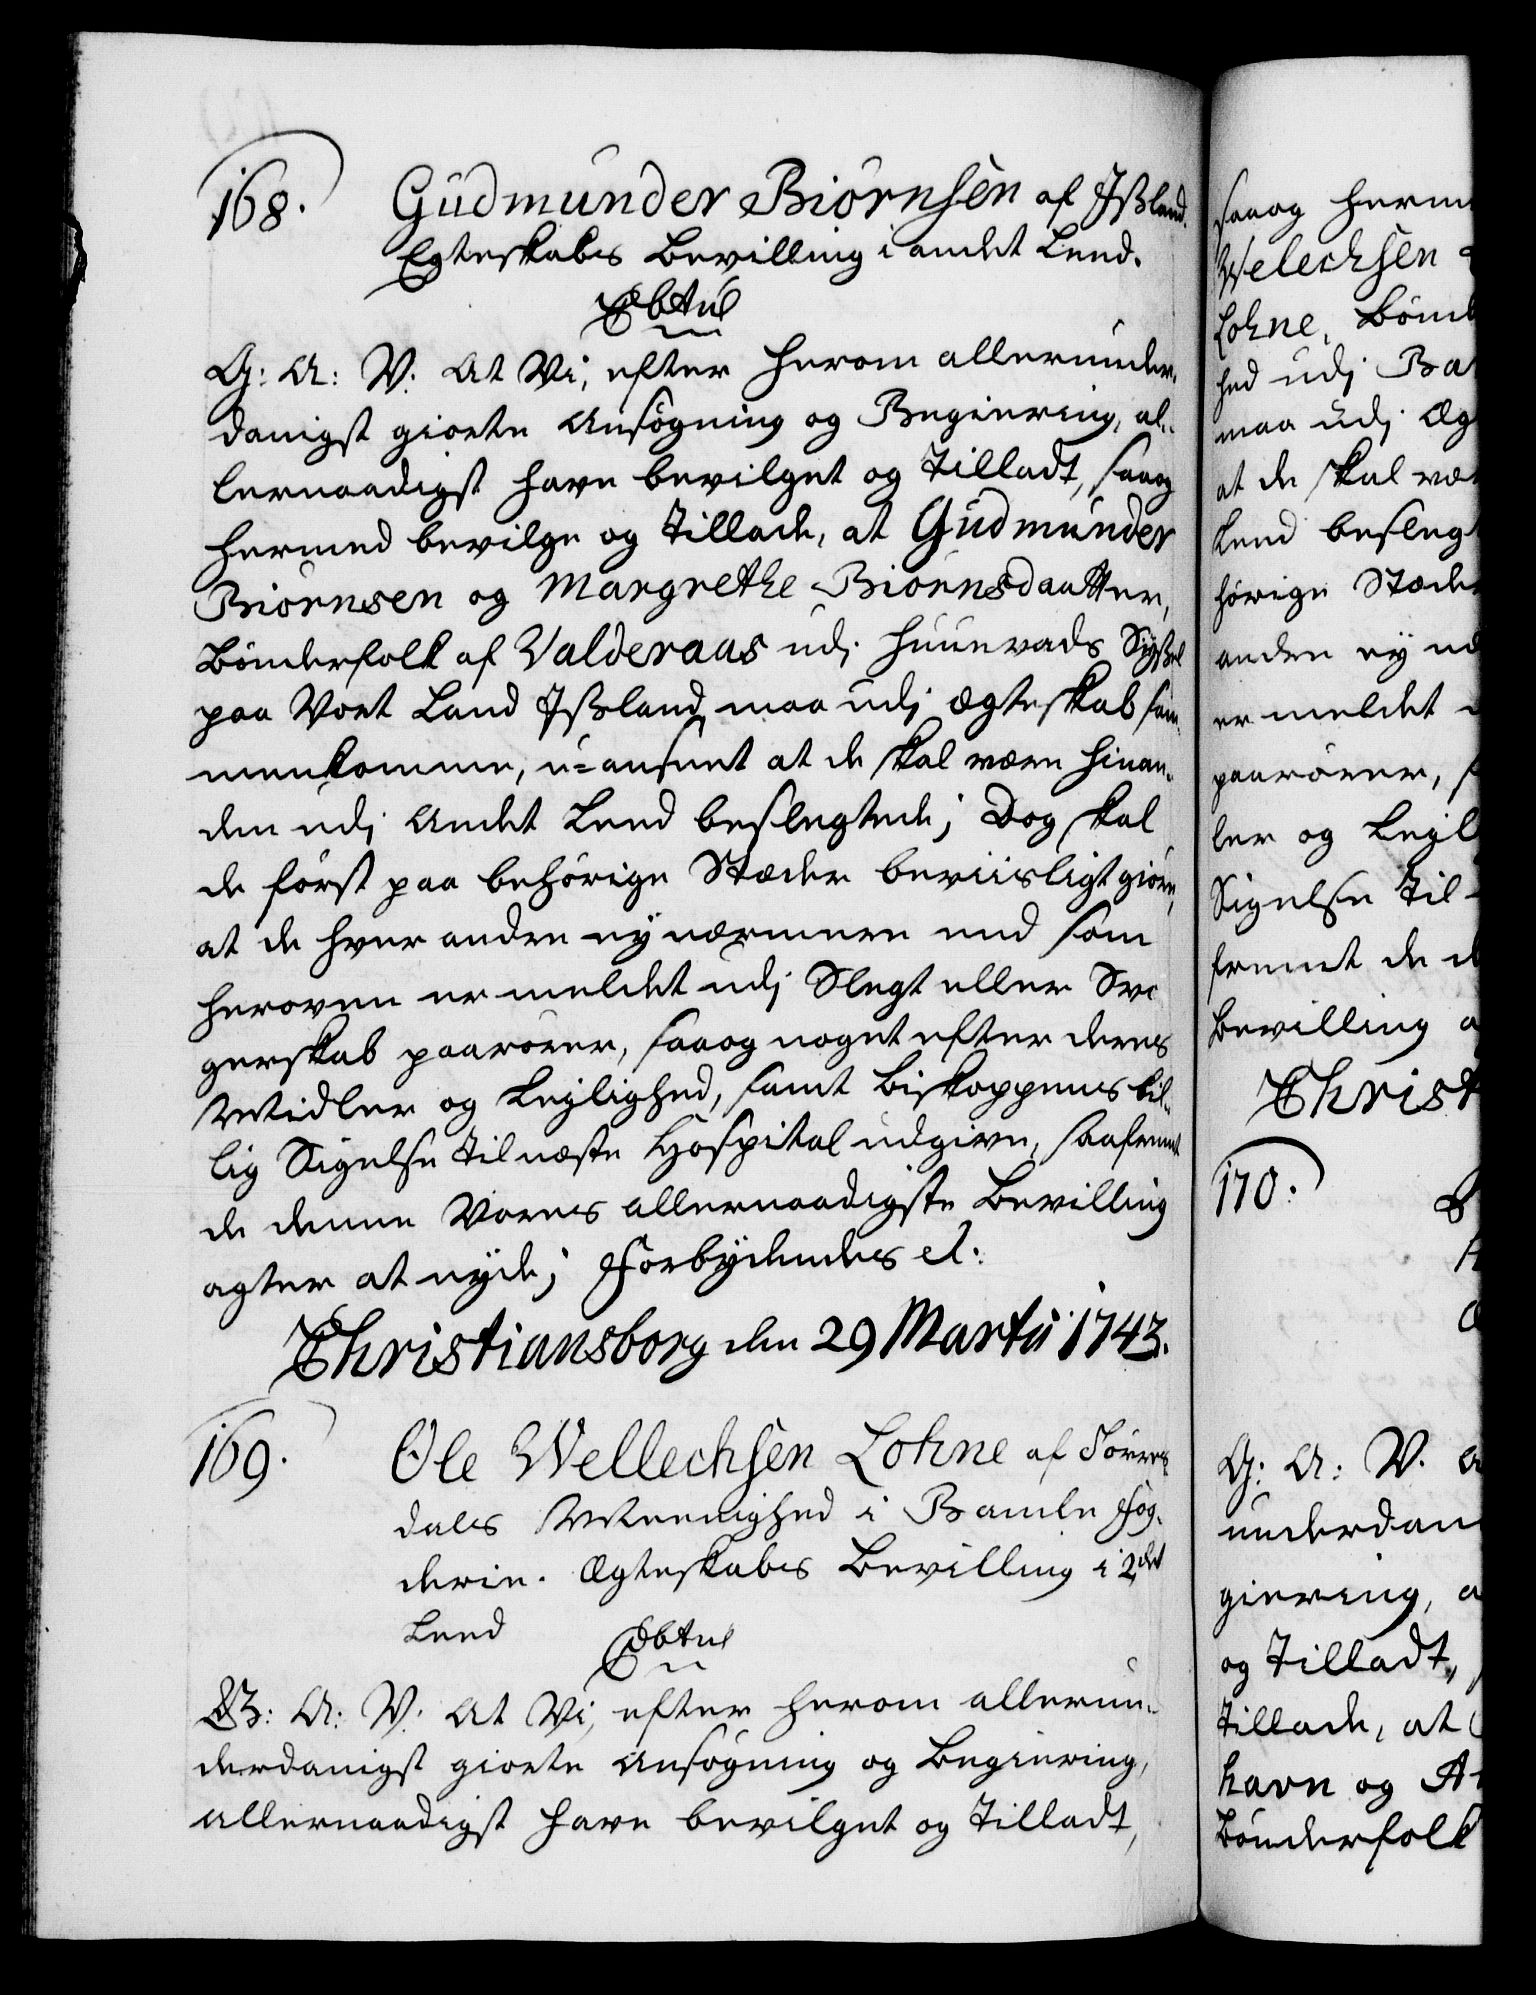 168. Gudmunder Biörnsen af Ißland.
Egteskabs Bevilling i andet Leed.
G: A: V: At Vi, efter herom allerunder-
danigst giorte Ansøgning og Begiering, al-
lernaadigst have bevilget og Tilladt, saaog
hermed bevilge og Tillade, at Gudmunder
Biörnsen og Margrethe Biörnsdaatter,
Bønderfolk af Valderaas udi Huunevads Syßel
paa Vort Land Ißland maa udi Ægteskab sam-
menkomme, u-anseet at de skal være hinan-
den udi Andet Leed beslegtede; Dog skal
de først paa behørige Stæder beviisligt giøre,
at de hver anden ey nærmere end som
heroven er meldet udi Slegt eller Svo-
gerskab paarører, saaog noget efter deres
Midler og Lejlighed, samt Biskoppens bil-
lig Sigelse til næste Hospital udgive, saafremt
de denne Vores allernaadigste Bevilling
agter at nyde; Forbydendes etc.
Christiansborg den 29 Martii 1743.
169. Ole Wellechsen Lohne af Tørres-
dals Meenighed i Bamle Fog-
derie. Ægteskabs Bevilling i 2det
Leed
G: A: V: At Vi, efter herom allerun-
derdanigst giorte Ansøgning og Begiering,
allernaadigst have bevilget og Tilladt,
saaog herm
Welechsen
Lohne, Bønd
hed udi Ba
maa udi Æg
at de skal vær
Leed besleg
hørige Stæde
anden ey næ
er meldet
paarører, s
ler og Lejl
Sigelse til
fremt de d
Bevilling a
Christ
170.
G: A: V. A
underdan
giering, a
og Tilladt,
Tillade, at
havn og A
Bønderfolk